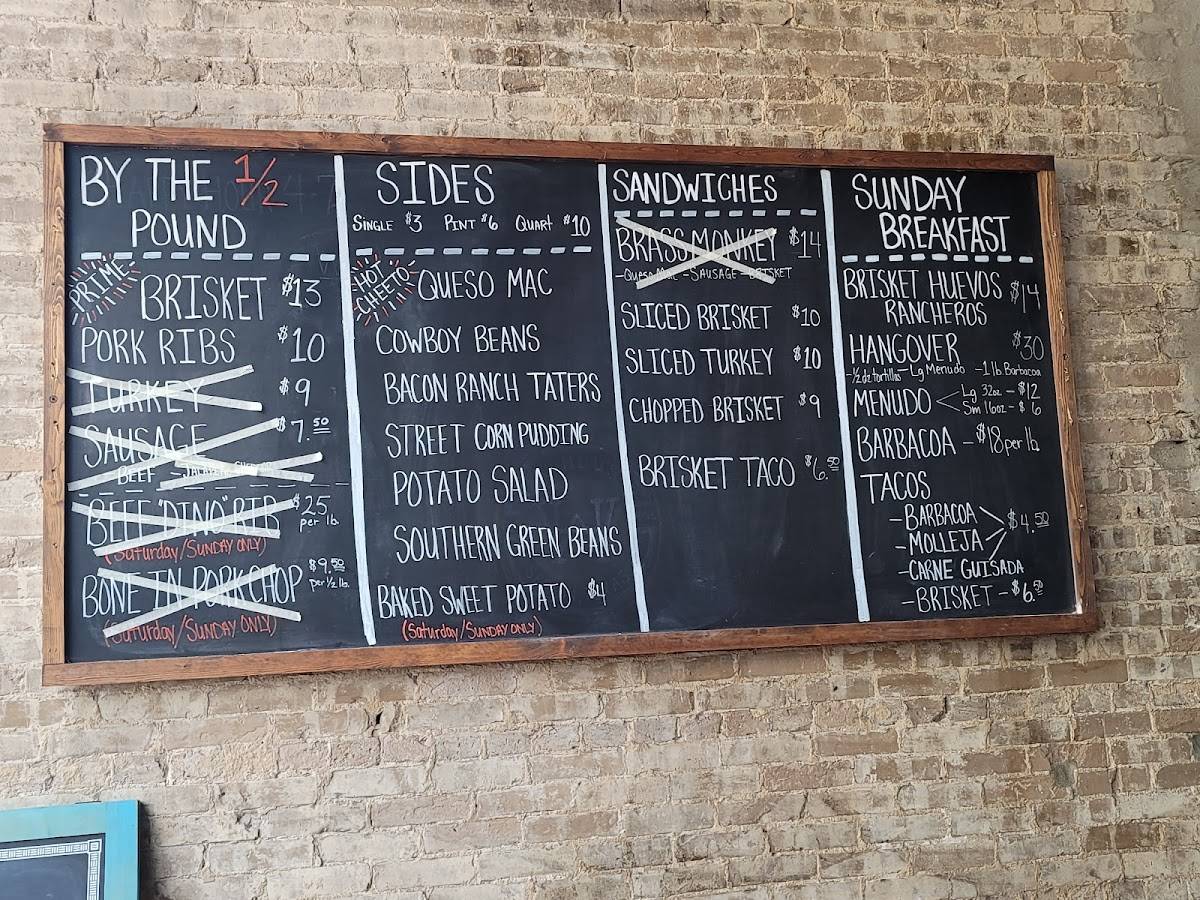 BY THE 1/2
POUND
PRIME
BRISKET $13
PORK RIBS $10
TURKEY $9
SAUSAGE $7.50
- BEEF - JALAPEÑO
BEEF "DINO" RIB $25 per lb.
(Saturday/SUNDAY ONLY)
BONE IN PORK CHOP $9.50 per 1/2 lb.
(Saturday/SUNDAY ONLY)
SIDES
SINGLE $3 PINT $6 QUART $10
HOT CHEETO
QUESO MAC
COWBOY BEANS
BACON RANCH TATERS
STREET CORN PUDDING
POTATO SALAD
SOUTHERN GREEN BEANS
BAKED SWEET POTATO $4
(Saturday/SUNDAY ONLY)
SANDWICHES
BRASS MONKEY $14
- QUESO MAC - SAUSAGE - BRISKET
SLICED BRISKET $10
SLICED TURKEY $10
CHOPPED BRISKET $9
BRISKET TACO $6.50
SUNDAY
BREAKFAST
BRISKET HUEVOS $14
RANCHEROS
HANGOVER $30
- 1/2 dz tortillas - Lg Menudo - 1 lb Barbacoa
MENUDO
Lg 32oz - $12
Sm 16oz - $6
BARBACOA - $18 per lb.
TACOS
- BARBACOA
- MOLLEJA $4.50
- CARNE GUISADA
- BRISKET - $6.50